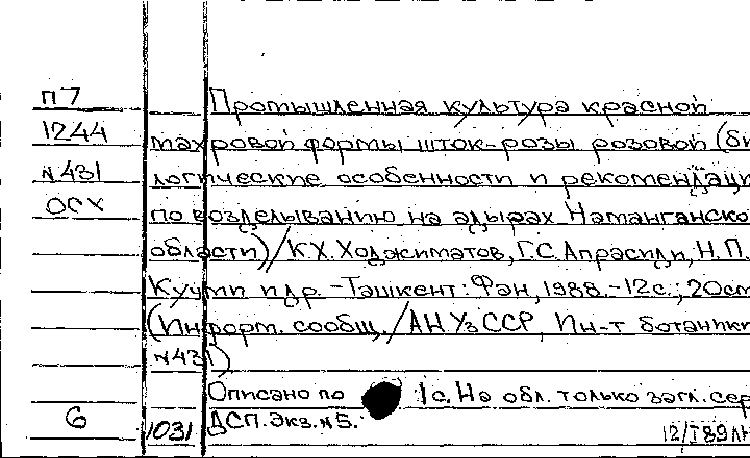 П7
1244
N431
ОСХ
Промышленная культура красной
махровой формы шток-розы розовой (би
логические особенности и рекомендаци
по возделыванию на адырах Наманганско
области)/К.Х. Ходжиматов, Г.С. Апрасиди, Н.П.
Кучми и др. - Ташкент: Фан, 1988. - 12с.; 20см
(Информ. сообщ./АН УзССР, Ин-т ботаники
N431)
Описано по 1с. На обл. только загл. сер
ДСП. Экз. N5.
6
1031